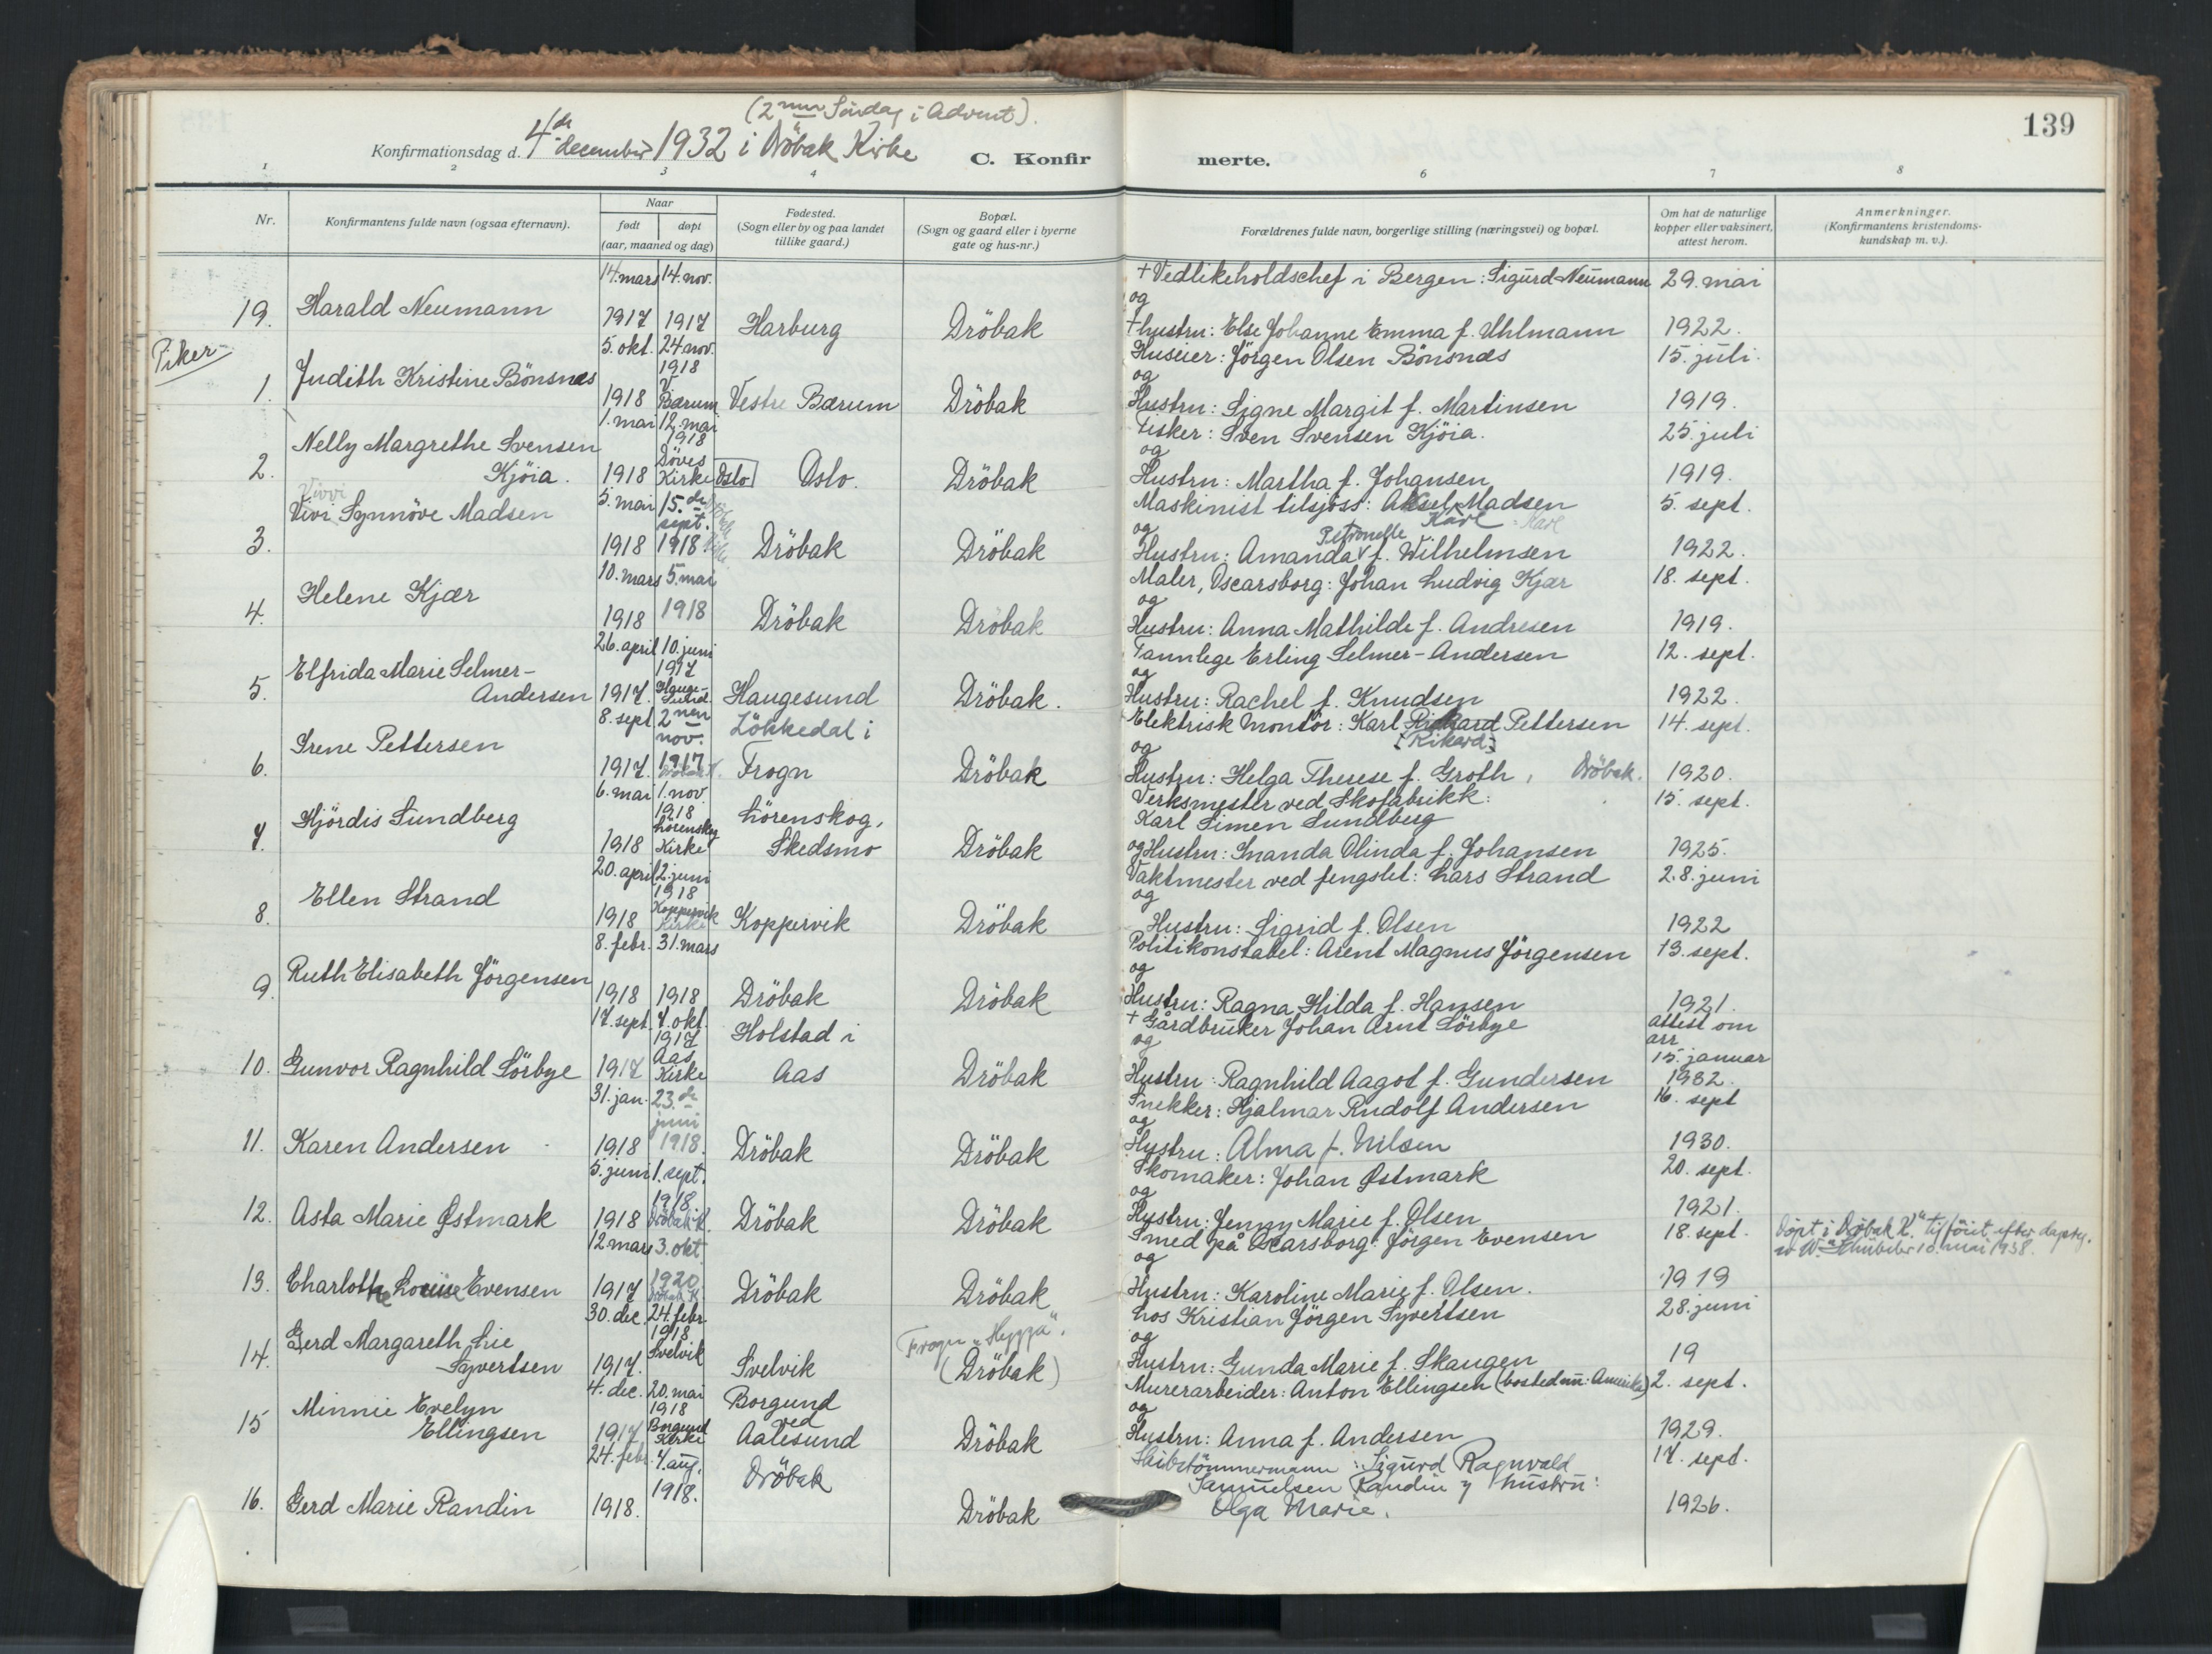 139
(2nen Söndag i Advent).
Konfirmationsdag d. 4de december 1932 i Dröbak Kirke C. Konfirmerte.
1 2 3 4 6 7 8
Nr. Konfirmantens fulde navn (ogsaa efternavn). Naar født døpt (aar, maaned og dag) Fødested. (Sogn eller by og paa landet tillike gaard.) Bopæl. (Sogn og gaard eller i byerne gate og hus-nr.) Forældrenes fulde navn, borgerlige stilling (næringsvei) og bopæl. Om hat de naturlige kopper eller vaksinert, attest herom. Anmerkninger. (Konfirmantens kristendoms-kundskap m. v.).
19. Harald Neumann 14. mars 1917 14. nov. 1917 Harburg Dröbak + Vedlikeholdschef i Bergen: Sigurd Neumann og + hustru: Else Johanne Emma f. Uhlmann 29. mai 1922.
Piker
1. Judith Kristine Bönsnæs 5. okt. 1918 24 nov. 1918 V. Bærum Vestre Bærum Dröbak Huseier: Jörgen Olsen Bönsnæs og Hustru: Signe Margit f. Martinsen 15. juli. 1919.
2. Nelly Margrethe Svensen Kjöia. 1. mai 1918 12. mai 1918 Döves Kirke Oslo Oslo. Dröbak Fisker: Sven Svensen Kjöia. og Hustru: Martha f. Johansen 25. juli 1919.
3. Vivi Vivvi Synnöve Madsen 5. mai 1918 15. de sept. 1918 Dröbak Dröbak Maskinist tilsjöss: Aksel Karl Madsen Karl og Hustru: Amanda Petronelle f. Wilhelmsen 5. sept. 1922.
4. Helene Kjær 10. mars 1918 5. mai 1918 Dröbak Dröbak Maler, Oscarsborg: Johan Ludvig Kjær og Hustru: Anna Mathilde f. Andresen 18. sept. 1919.
5. Elfrida Marie Selmer-Andersen 26. april 1917. 10. juni 1917 Hauge-sund Haugesund Dröbak. Tannlege Erling Selmer-Andersen og Hustru: Rachel f. Knudsen 12. sept. 1922.
6. Irene Pettersen 8. sept 1917. 2nen nov. 1917 Dröbak K. Lökkedal i Frogn Dröbak Elektrisk Montör: Karl Rickard [Rikard] Pettersen og Hustru: Helga Therese f. Groth, Dröbak. 14. sept. 1920.
7. Hjördis Sundberg 6. mai 1918 1. nov. 1918 Lörenskog Kirke Lörenskog, Skedsmo Dröbak Verksmester ved Skofabrikk: Karl Simen Sundberg og Hustru: Inanda Olinda f. Johansen 15. sept. 1925.
8. Ellen Strand 20. april 1918 2. juni 1918 Koppervik Kirke Koppervik Dröbak Vaktmester ved fengslet: Lars Strand og Hustru: Sigrid f. Olsen 28. juni 1922
9. Ruth Elisabeth Jörgensen 8. febr. 1918 31. mars 1918 Dröbak Dröbak Politikonstabel: Arent Magnus Jörgensen og Hustru: Ragna Hilda f. Hansen 13. sept. 1921.
10. Gunvor Ragnhild Sörbye 17. sept. 1917 7. okt. 1917 Aas Kirke Holstad i Aas Dröbak + Gårdbruker Johan Arnt Sörbye og Hustru: Ragnhild Aagot f. Gundersen attest om arr 15. januar 1932.
11. Karen Andersen 31. jan. 1918 23. de juni 1918. Dröbak Dröbak Snekker: Hjalmar Rudolf Andersen og Hustru: Alma f. Nilsen 16. sept 1930.
12. Asta Marie Østmark 5. juni 1918 1. sept. 1918. Dröbak K. Dröbak Dröbak Skomaker: Johan Østmark og Hustru: Jenny Marie f. Olsen 20. sept. 1921.
13. Charlotte Louise Evensen 12 mars 1917 3. okt 1920. Dröbak K. Dröbak Dröbak Smed på Oscarsborg: Jörgen Evensen og Hustru: Karoline Marie f. Olsen. 18. sept. 1919 Döpt i Dröbak K. tilföiet efter av W. 10. mai 1938.
14. Gerd Margareth Lie Syvertsen 30. dec. 1917. 24. febr 1918 Svelvik Svelvik Frogn „Hygga". (Dröbak) Los Kristian Jörgen Syvertsen og Hustru: Gunda Marie f. Skaugen 28. juni 19
15 Minnie Evelyn Ellingsen 4. dec. 1917 20. mai 1918 Borgund Kirke Borgund ved Aalesund Dröbak Murerarbeider: Anton Ellingsen (bosted nu: Amerika) og Hustru: Anna f. Andersen 2. sept. 1929.
16. Gerd Marie Randin 24. febr. 1918. 4. aug. 1918. Dröbak Dröbak Skibstömmermann: Sigurd Ragnvald Samuelsen Randin og hustru: Olga Marie. 17. sept. 1926.